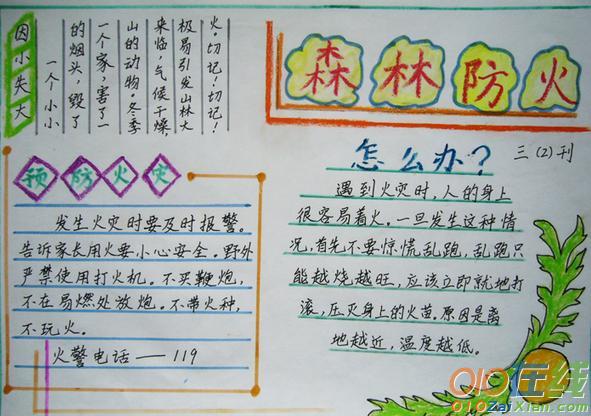 森林防火
三(2)刊
因小失大
一个小小
的烟头,毁了
一个家,害了一
山的动物。冬季
来临,气候干燥
极易引发山林大
火。切记!切记!
预防火灾
发生火灾时要及时报警。
告诉家长用火要小心安全。野外
严禁使用打火机。不买鞭炮,
不在易燃处放炮。不带火种,
不玩火。
火警电话——119
怎么办?
遇到火灾时,人的身上
很容易着火。一旦发生这种情
况,首先不要惊慌乱跑,乱跑只
能越烧越旺,应该立即就地打
滚,压灭身上的火苗。原因是离
地越近,温度越低。
010在线
010ZaiXian.com